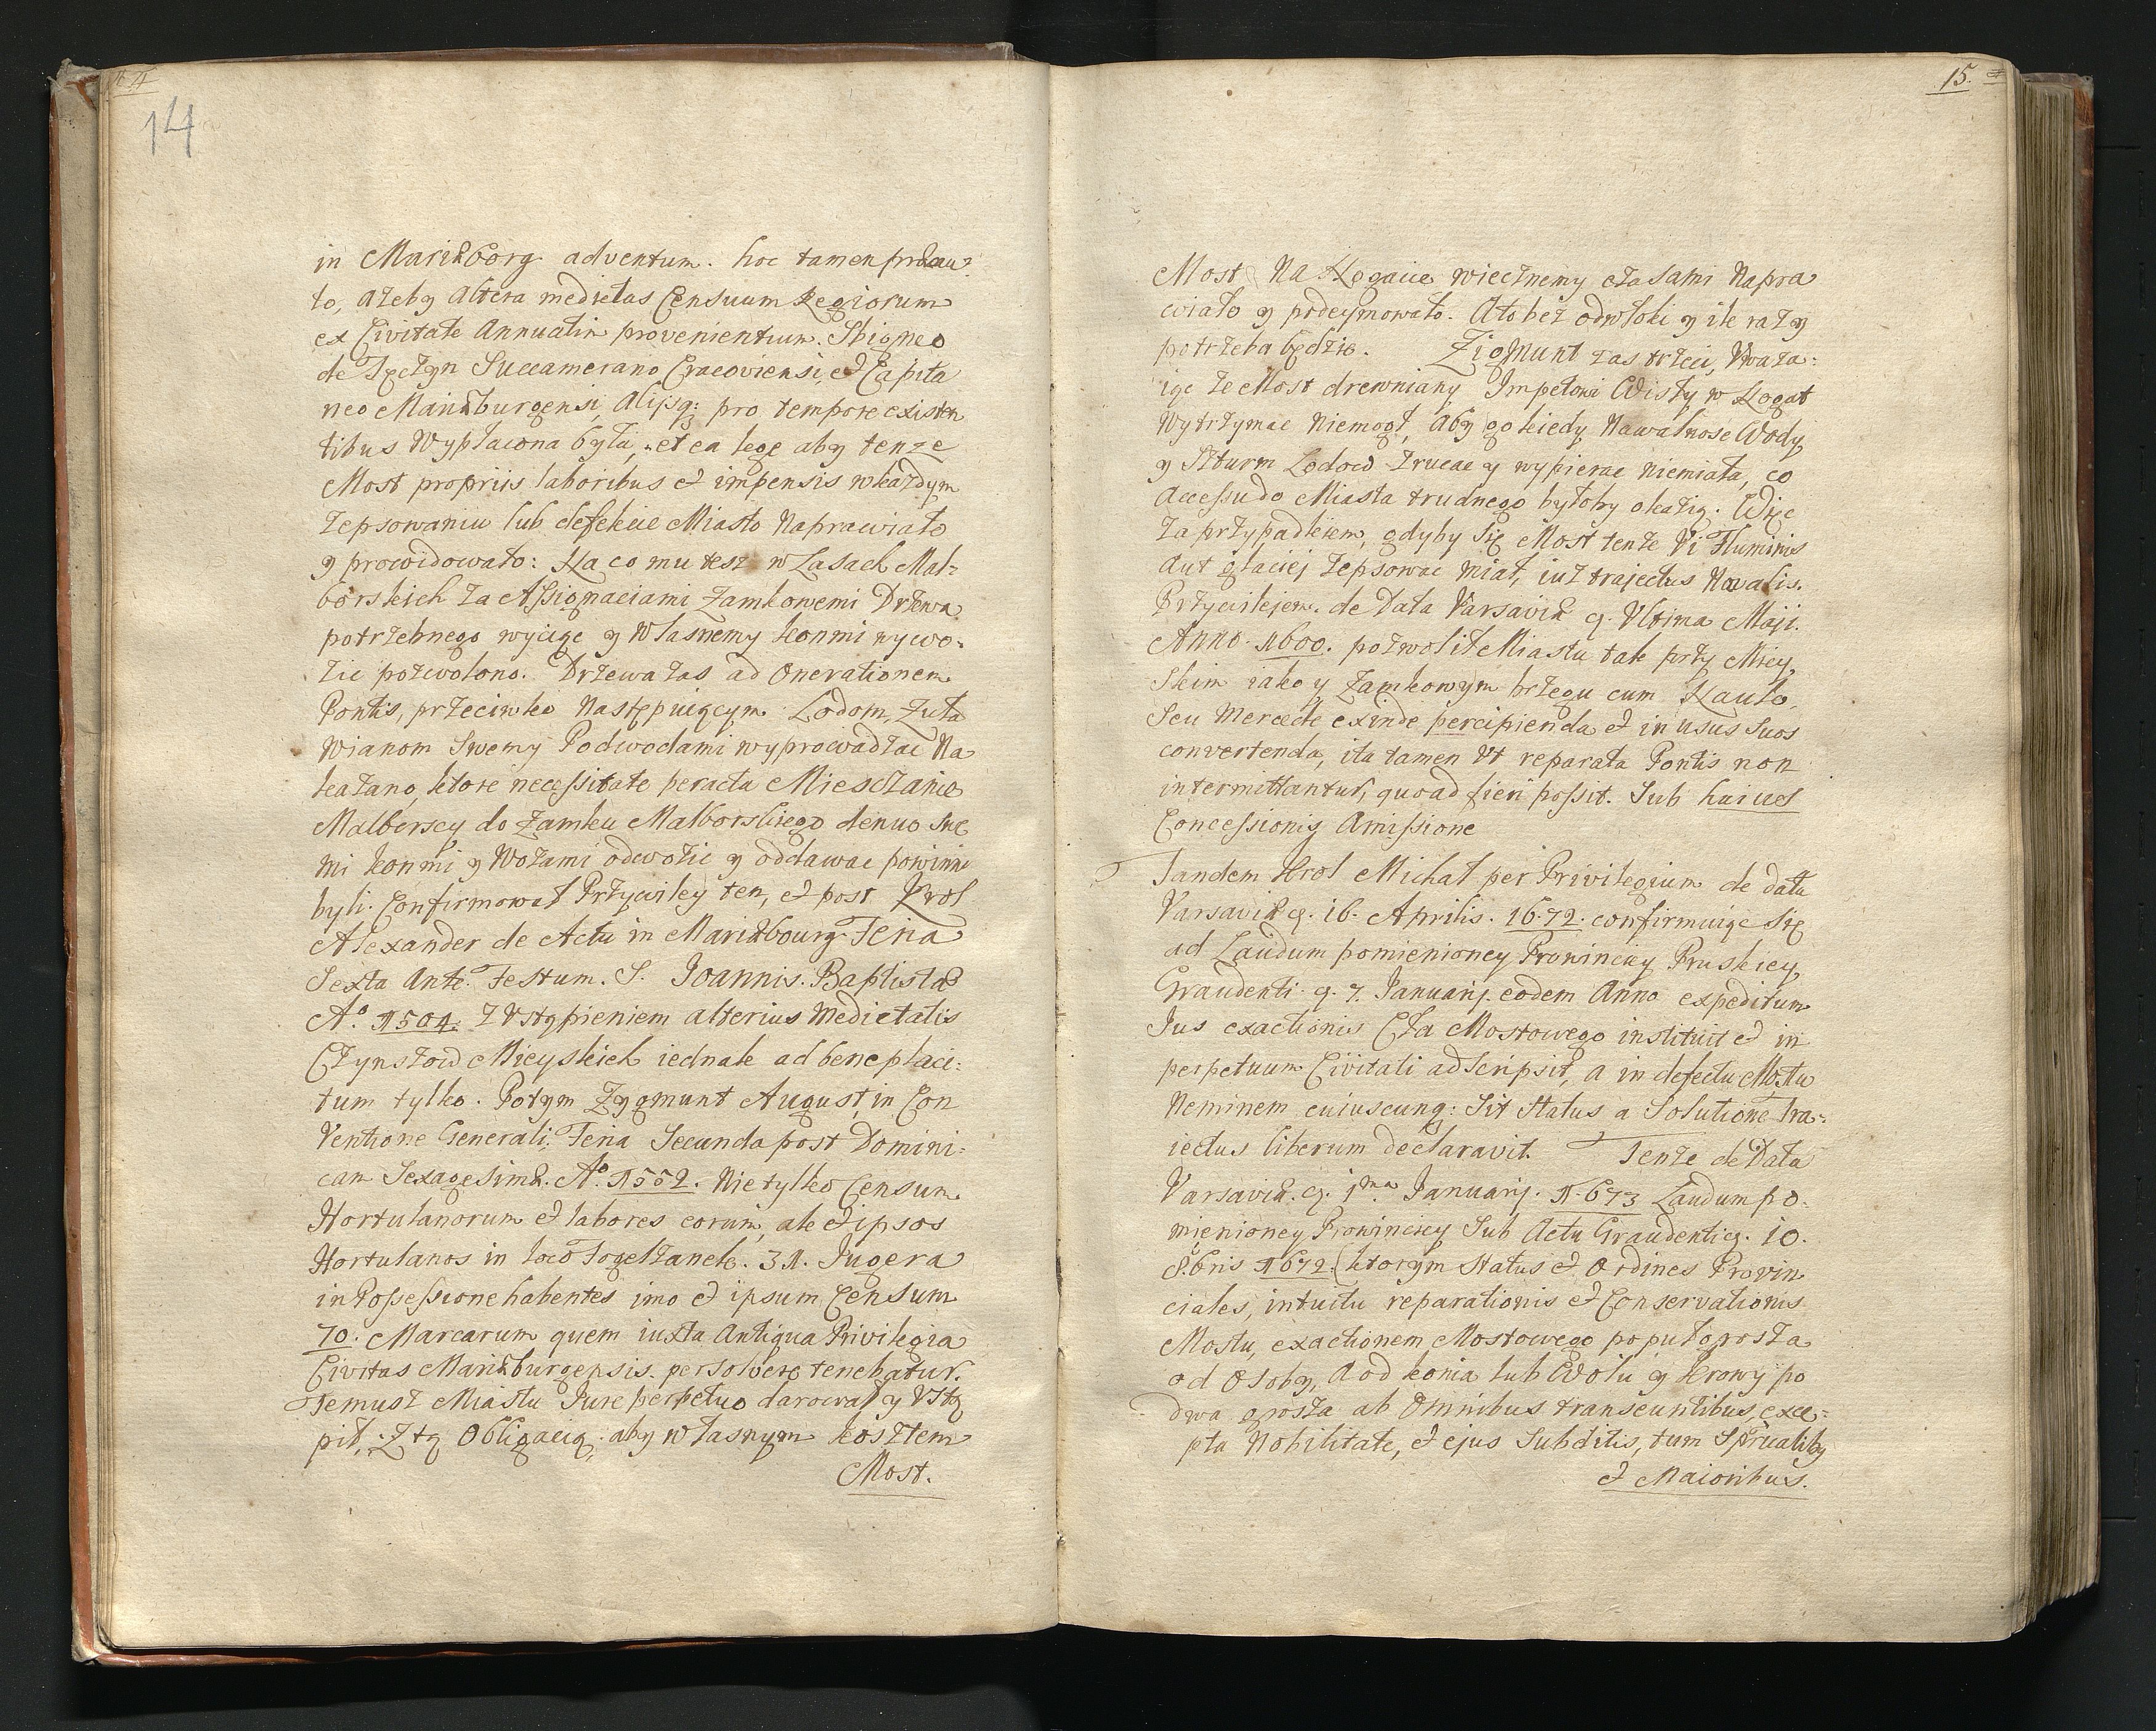 14
in Mariæborg adventum. hoc tamen præcau
to, ażeby altera medietas Censuum Regiorum
ex Civitate Annuatim provenientium. Sbigneo
de Tęczyn Succamerano Cracoviensi, et Capita
neo Mariæburgensi, Alijsq; pro tempore existen
tibus Wypłacona była, et ea lege aby tenze
Most propriis laboribus et impensis w każdym
zepsowaniu lub defekcie Miasto Naprawiało
y prowidowało: Na co mu tesz w Lasach Mal-
borskich za Assignaciami Zamkowemi Drzewa
potrzebnego wyciąć y Własnemy konmi wywo-
zić pozwolono. Drzewa zas ad Onerationem
Pontis, przeciwko Następuiącym Lodom, Zuła
wianom Swemy Podwodami wyprowadzać Na
kazano, ktore necessitate peracta Miesczanie
Malborscy do Zamku Malborskiego denuo swe
mi konmi y Wozami odwozić y oddawac powinni
byli. Confirmował Przywiley ten, et post Krol
Alexander de Actu in Mariæbourg Feria
Sexta Ante Festum. S. Joannis. Baptistæ
Aº 1504. Z Ustąpieniem alterius Medietatis
Czynszow Mieyskich iednak ad beneplaci-
tum tylko. Potym Zygmunt August, in Con
Ventione Generali, Feria Secunda post Domini-
cam Sexagesimæ. Aº. 1552. Nie tylko Censum
Hortulanorum et labores eorum, ale et ipsos
Hortulanos in loco 31. Jugera
in Possessione habentes imo et ipsum Censum
70. Marcarum quem iuxta Antiqua Privilegia
Civitas Mariæburgensis persolvere tenebatur.
Temusz Miastu Jure perpetuo darował y Ustą
pił, Z tą Obligacią, aby własnym kosztem
Most.
15.
Most Na Nogacie wiecznemy czasami Napra
wiało y podeymowało. A to bez odwłoki y ile razy
potrzeba będzie. Zigmunt zas trzeci, Uwaza-
iąc ze Most drewniany Impetowi Wisły w Nogat
Wytrzymać Niemogł, Aby go kiedy Nawalnosc Wody
y Szturm Lodow zrucac y wypierac niemiała, co
Accessu do Miasta trudnego byłoby okazią. Więc
Za przypadkiem, gdyby się Most tenze Vi Fluminis
Aut glaciej Zepsowac miał, iuz trajectus Navalis.
Przywilejem. de Data Varsaviæ q. Ultima Maji.
Anno. 1600. pozwolił Miastu tak przy Miey
skim iako y Zamkowym brzegu cum Naulo,
Seu Mercede exinde percipienda et in usus suos
convertenda, ita tamen Vt reparata Pontis non
intermittantur, quoad fieri possit. Sub huius
Concessionis Amissione
Tandem Krol Michał per Privilegium de data
Varsaviæ q. 16. Aprilis. 1672. confirmuiąc Się
ad Laudum pomienioney Prowinciey Pruskiey,
Graudenti q. 7. Januarij. eodem Anno expeditum
Jus exactionis Cła Mostowego instituit et in
perpetuum Civitati adscripsit, a in defectu Mostu
Neminem cuiuscunq: Sit Status a Solutione Tra-
iectus liberum declaravit. Tenze de Data
Varsaviæ. q. 1ma Januarij. 1673 Laudum po
mienioney Prowinciey Sub Actu Graudenti q. 10.
8.bris 1672. ktorym Status et Ordines Provin
ciales, intuitu reparationis et Conservationis
Mostu, exactionem Mostowego po puł grosza
od Osoby, A od konia lub Wołu y Krowy po
dwa grosza ab Omnibus transeuntibus, exce-
pta Nobilitate, et ejus Subditis, tum Sprualiby
et Maioribus.